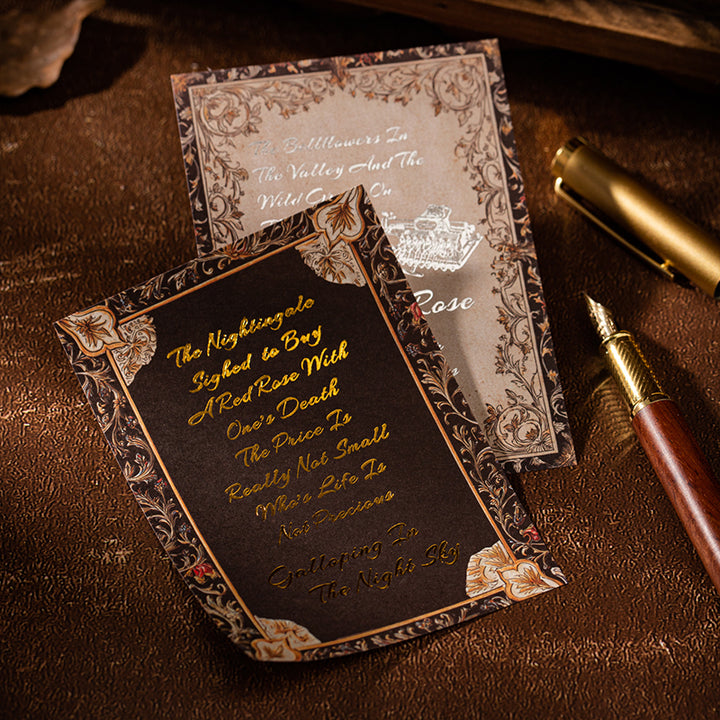 The Bellflowers In
The Valley And The
Wild On
Rose
The Nightingale
Sighed to Buy
A Red Rose With
One's Death
The Price Is
Really Not Small
Who's Life Is
Not Precious
Galloping In
The Night Sky